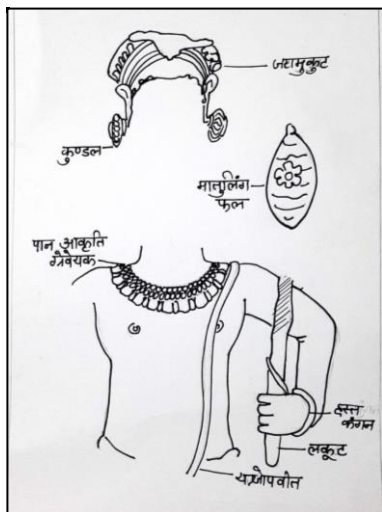 जटामुकुट
कुण्डल
मातुलिंग
फल
पान आकृति
ग्रैवेयक
हस्त
कंगन
लकूट
यज्ञोपवीत